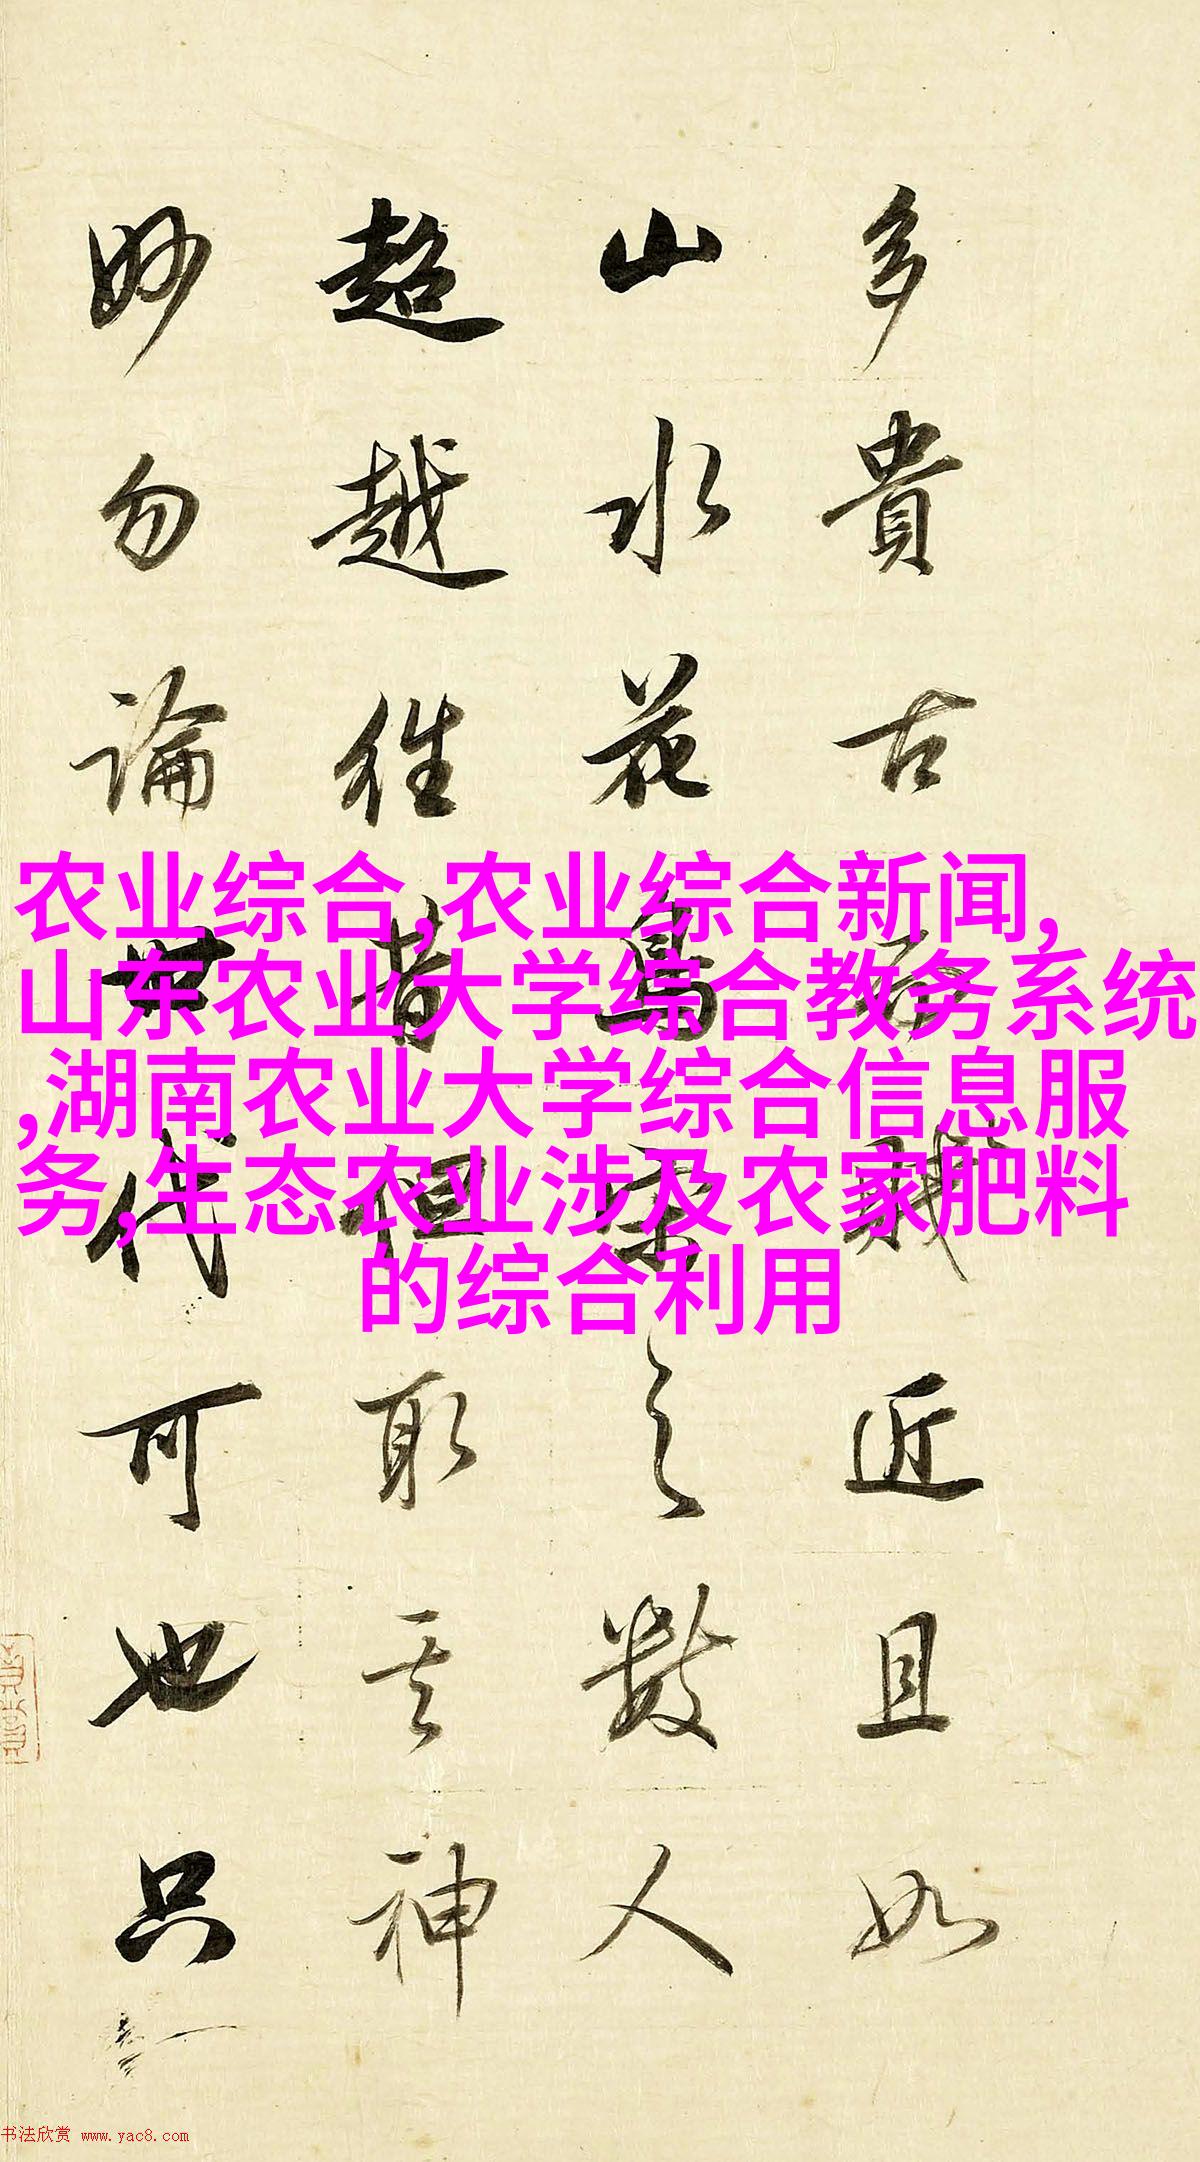 多貴古而賤近且如
山水花鳥宋之數人
超越往昔但取其神
妙勿論世代可也只
农业综合,农业综合新闻,
山东农业大学综合教务系统
,湖南农业大学综合信息服
务,生态农业涉及农家肥料
的综合利用
书法欣赏 www.yac8.com